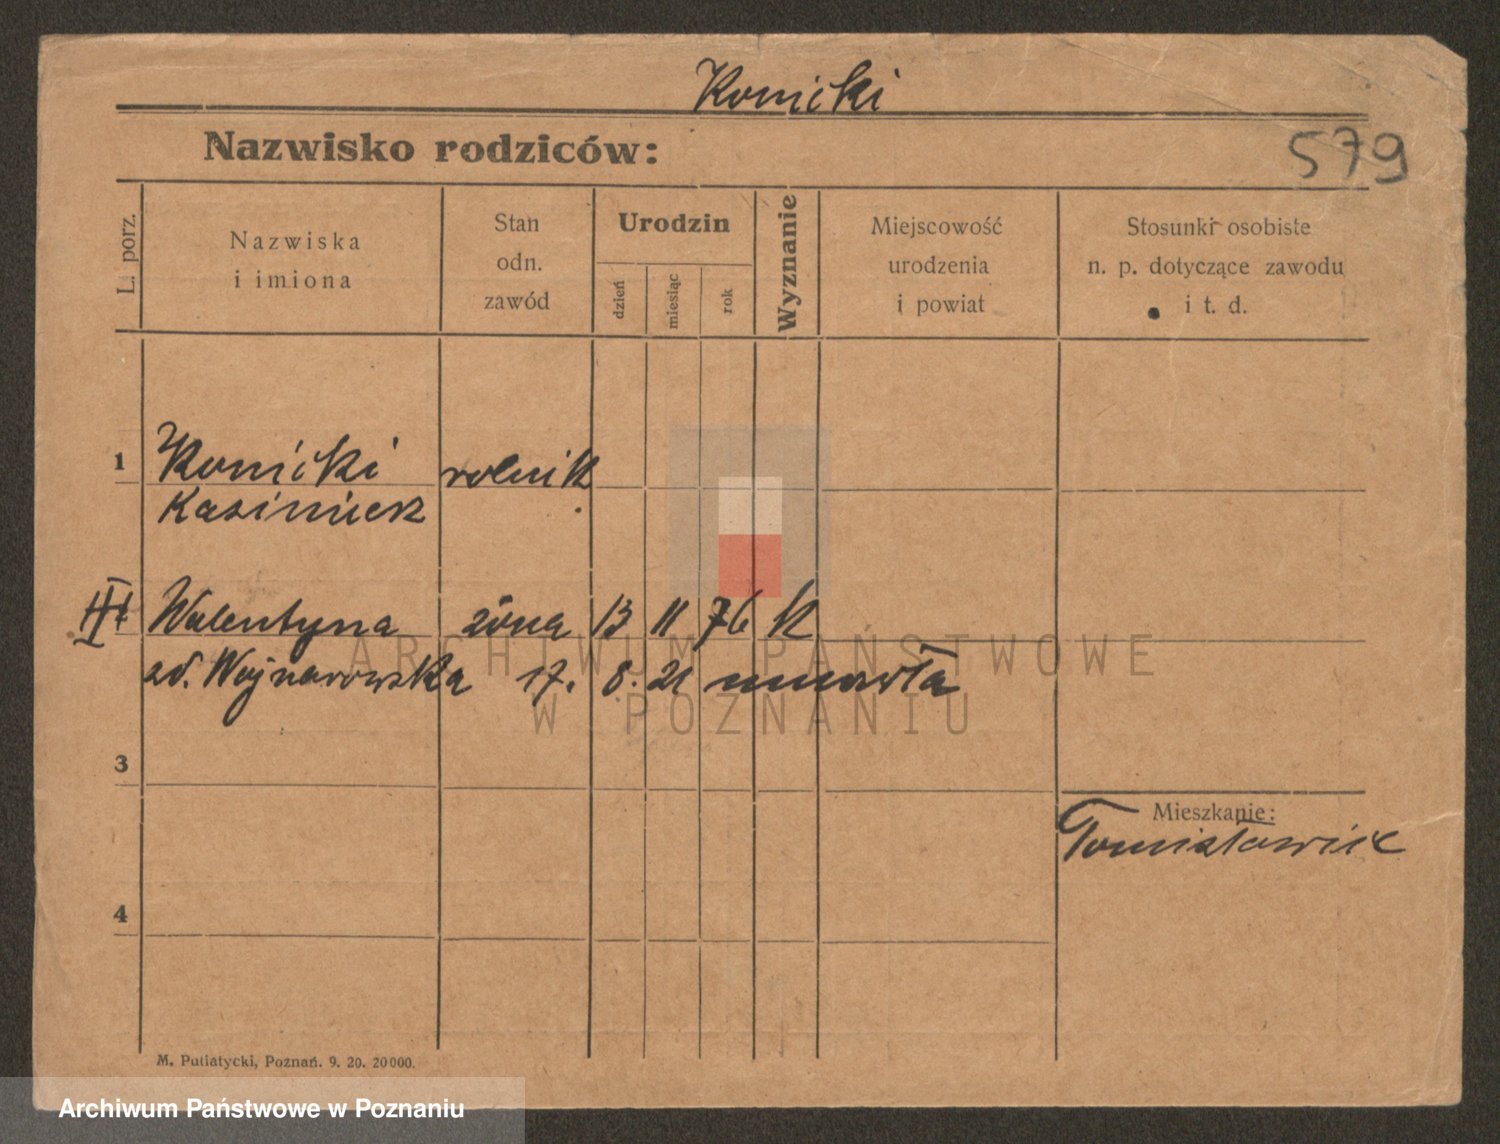 Konicki
Nazwisko rodziców:
579
L. porz.
Nazwiska
i imiona
Stan
odn.
zawód
Urodzin
dzień
miesiąc
rok
Wyznanie
Miejscowość
urodzenia
i powiat
Stosunki osobiste
n. p. dotyczące zawodu
i t. d.
1 Konicki rolnik
Kasimierz
Walentyna żona 13 11 76 K
zd. Wojnarowska 17. 8. 21 umarła
ARCHIWUM PAŃSTWOWE
W POZNANIU
3
Mieszkanie:
4
M. Putiatycki, Poznań. 9. 20. 20000.
Archiwum Państwowe w Poznaniu